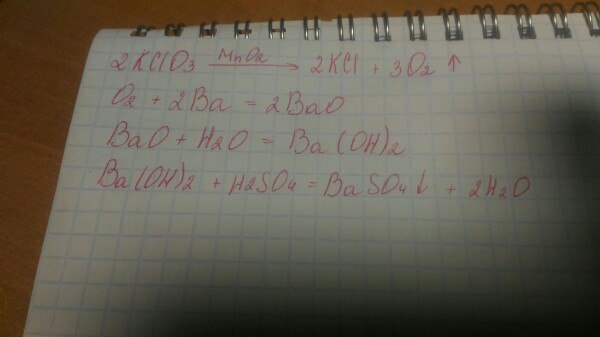 2KClO3 MnO2 → 2KCl + 3O2 ↑
O2 + 2Ba = 2BaO
BaO + H2O = Ba(OH)2
Ba(OH)2 + H2SO4 = BaSO4↓ + 2H2O